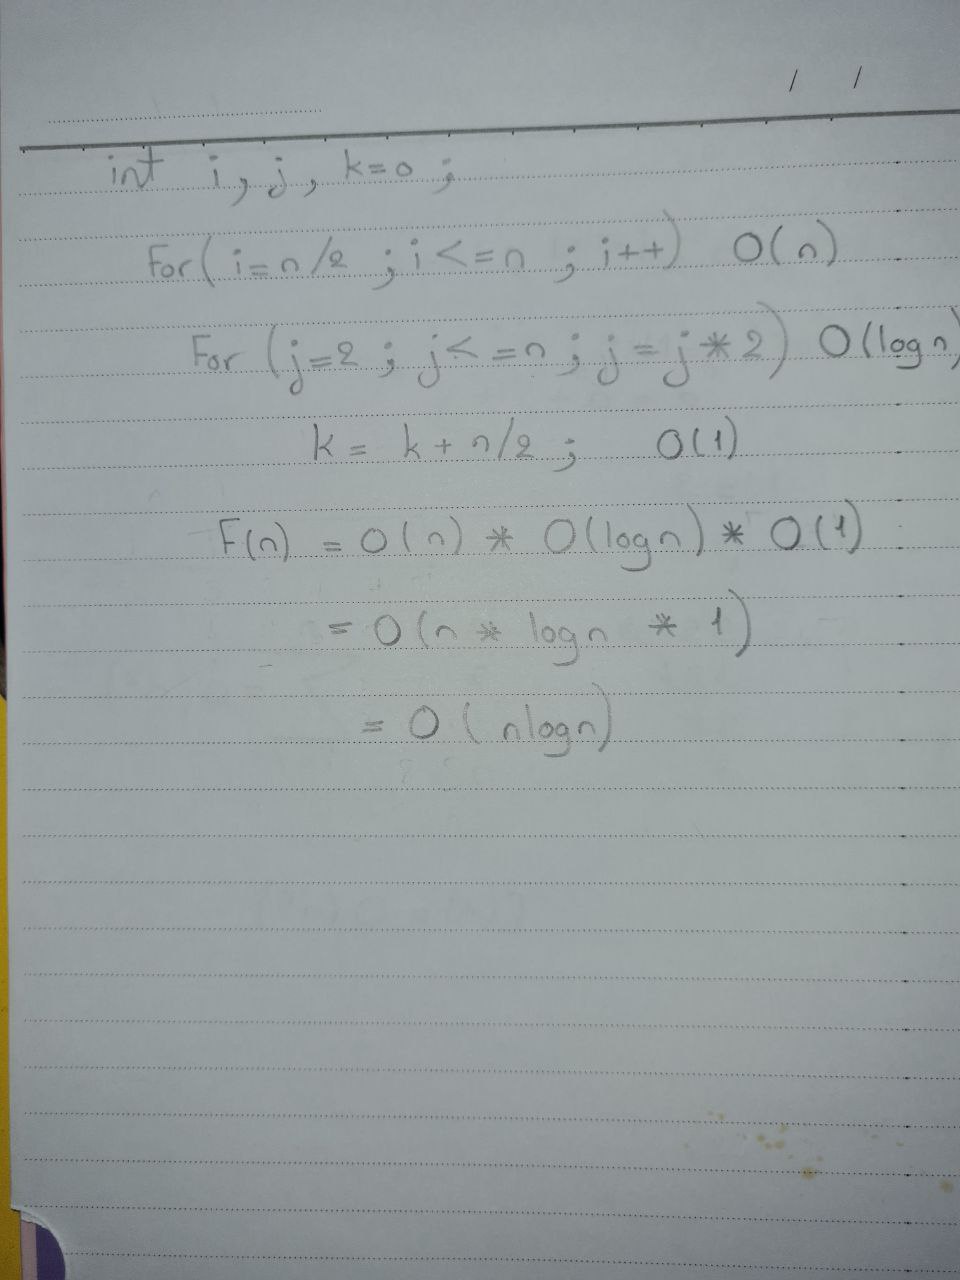 / /
int i, j, k=0 ;
For( i=n/2 ; i<=n ; i++) O(n)
For (j=2 ; j<=n ; j=j*2) O(logn)
k= k+n/2 ; O(1)
F(n) = O(n) * O(logn) * O(1)
= O(n * logn * 1)
= O( nlogn)